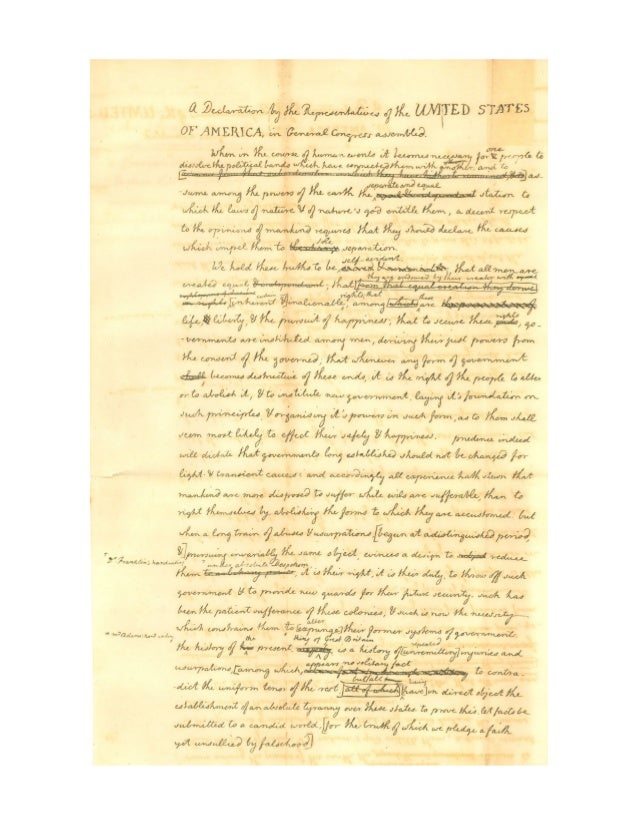 A Declaration by the Representatives of the UNITED STATES
OF AMERICA, in General Congress assembled.
When in the course of human events it becomes necessary for one people to
dissolve the political bands which have connected them with another, and to as-
-sume among the powers of the earth the separate and equal station to
which the laws of nature & of nature's god entitle them, a decent respect
to the opinions of mankind requires that they should declare the causes
which impel them to the separation.
We hold these truths to be self-evident, that all men are
created equal, that they are endowed by their creator with
[inherent & inalienable rights; that among these are
life, liberty, & the pursuit of happiness; that to secure these rights, go-
-vernments are instituted among men, deriving their just powers from
the consent of the governed; that whenever any form of government
becomes destructive of these ends, it is the right of the people to alter
or to abolish it, & to institute new government, laying it's foundation on
such principles & organising it's powers in such form, as to them shall
seem most likely to effect their safety & happiness. prudence indeed
will dictate that governments long established should not be changed for
light & transient causes: and accordingly all experience hath shewn that
mankind are more disposed to suffer while evils are sufferable, than to
right themselves by abolishing the forms to which they are accustomed. but
when a long train of abuses & usurpations, [begun at a distinguished period,
&] pursuing invariably the same object, evinces a design to reduce
* Dr Franklin's handwriting
them * under absolute Despotism, it is their right, it is their duty, to throw off such
government & to provide new guards for their future security. such has
been the patient sufferance of these colonies, & such is now the necessity
which constrains them to [expunge] alter their former systems of government.
the history of the present King of Great Britain is a history of [unremitting] repeated injuries and
usurpations, [among which, appears no solitary fact to contra-
-dict the uniform tenor of the rest, [all of which] but all [have] having in direct object the
establishment of an absolute tyranny over these states. to prove this, let facts be
submitted to a candid world, [for the truth of which we pledge a faith
yet unsullied by falsehood]